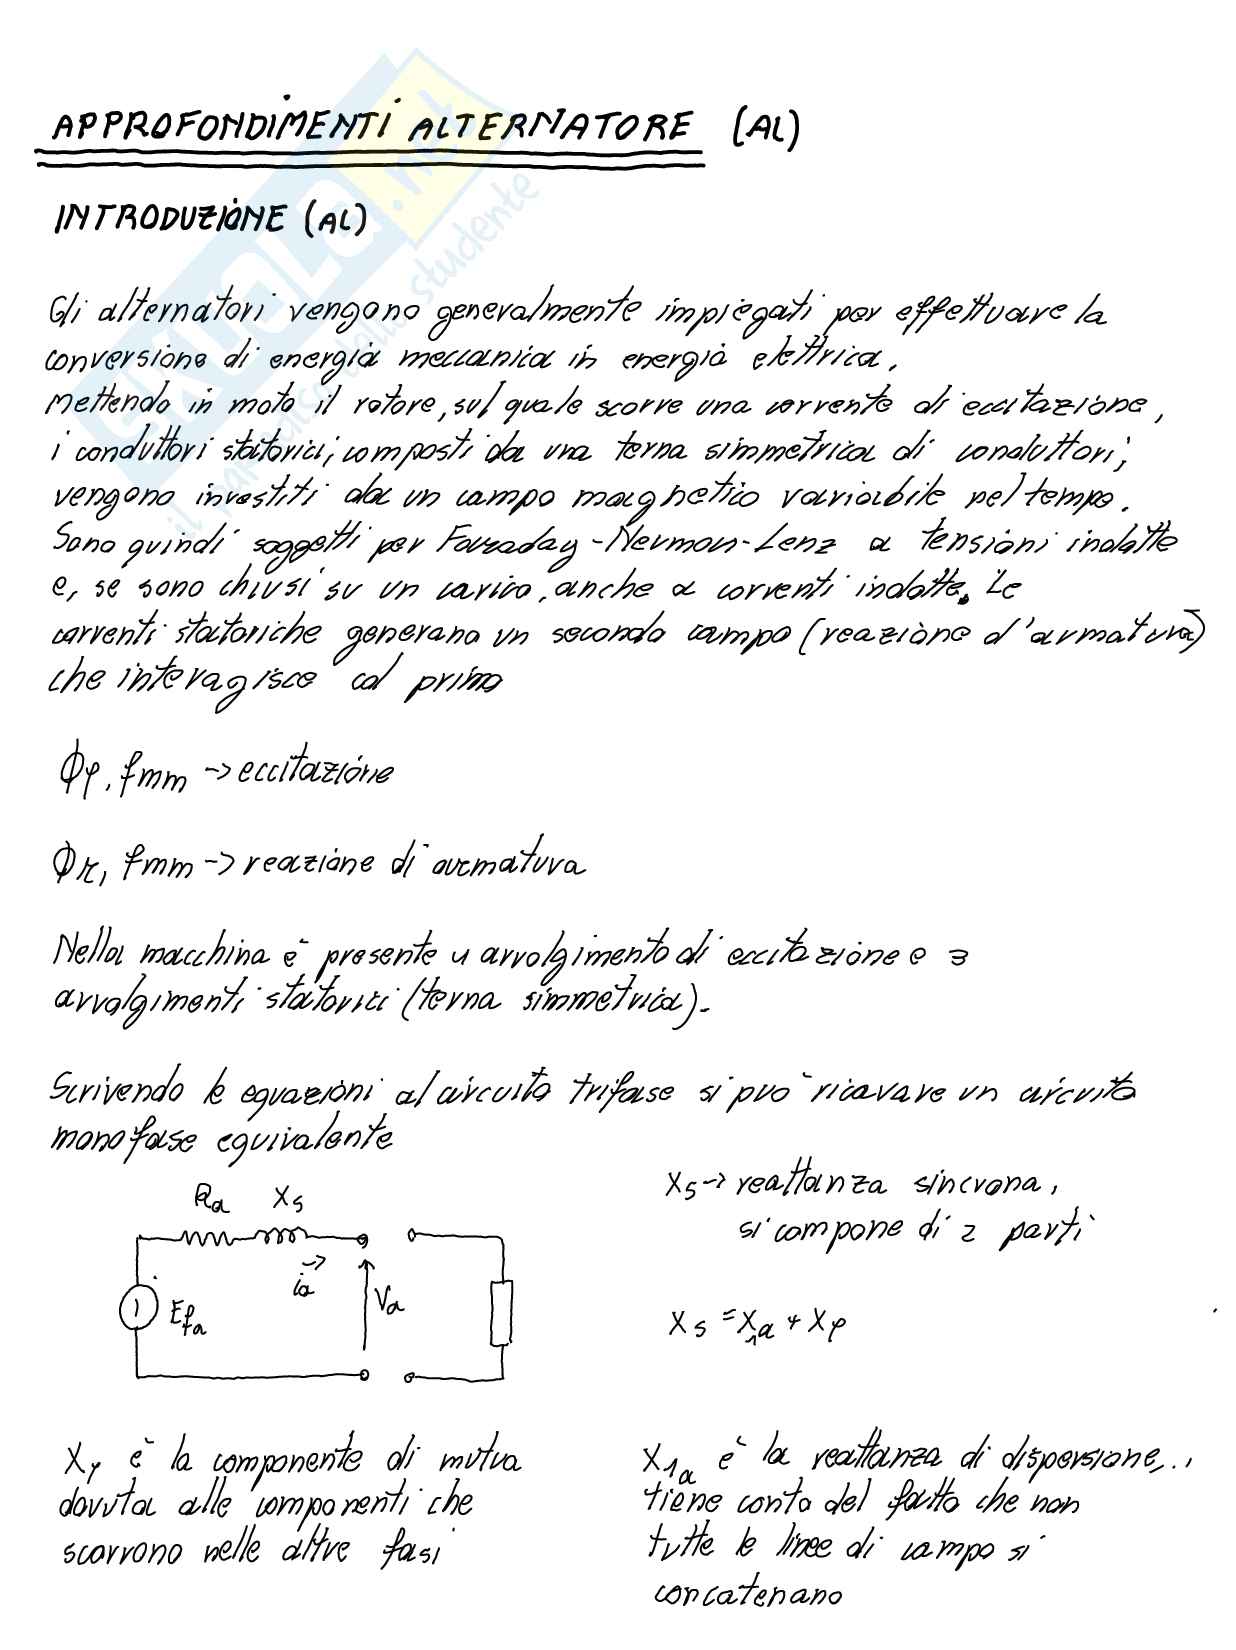 APPROFONDIMENTI ALTERNATORE (AL)
INTRODUZIONE (AL)
Gli alternatori vengono generalmente impiegati per effettuare la
conversione di energia meccanica in energia elettrica.
Mettendo in moto il rotore, sul quale scorre una corrente di eccitazione,
i conduttori statorici, composti da una terna simmetrica di conduttori,
vengono investiti da un campo magnetico variabile nel tempo.
Sono quindi soggetti per Faraday-Neuman-Lenz a tensioni indotte
e, se sono chiusi su un carico, anche a correnti indotte. Le
correnti statoriche generano un secondo campo (reazione d'armatura)
che interagisce col primo
Φφ, fmm -> eccitazione
Φr, fmm -> reazione di armatura
Nella macchina è presente 1 avvolgimento di eccitazione e 3
avvolgimenti statorici (terna simmetrica).
Scrivendo le equazioni al circuito trifase si può ricavare un circuito
monofase equivalente
Ra Xs
ia
Efa
Va
Xs -> reattanza sincrona,
si compone di 2 parti
Xs = X1a + Xφ
Xφ è la componente di mutua
dovuta alle componenti che
scorrono nelle altre fasi
X1a è la reattanza di dispersione,
tiene conto del fatto che non
tutte le linee di campo si
concatenano
SKUOLA.net
il paradiso dello studente